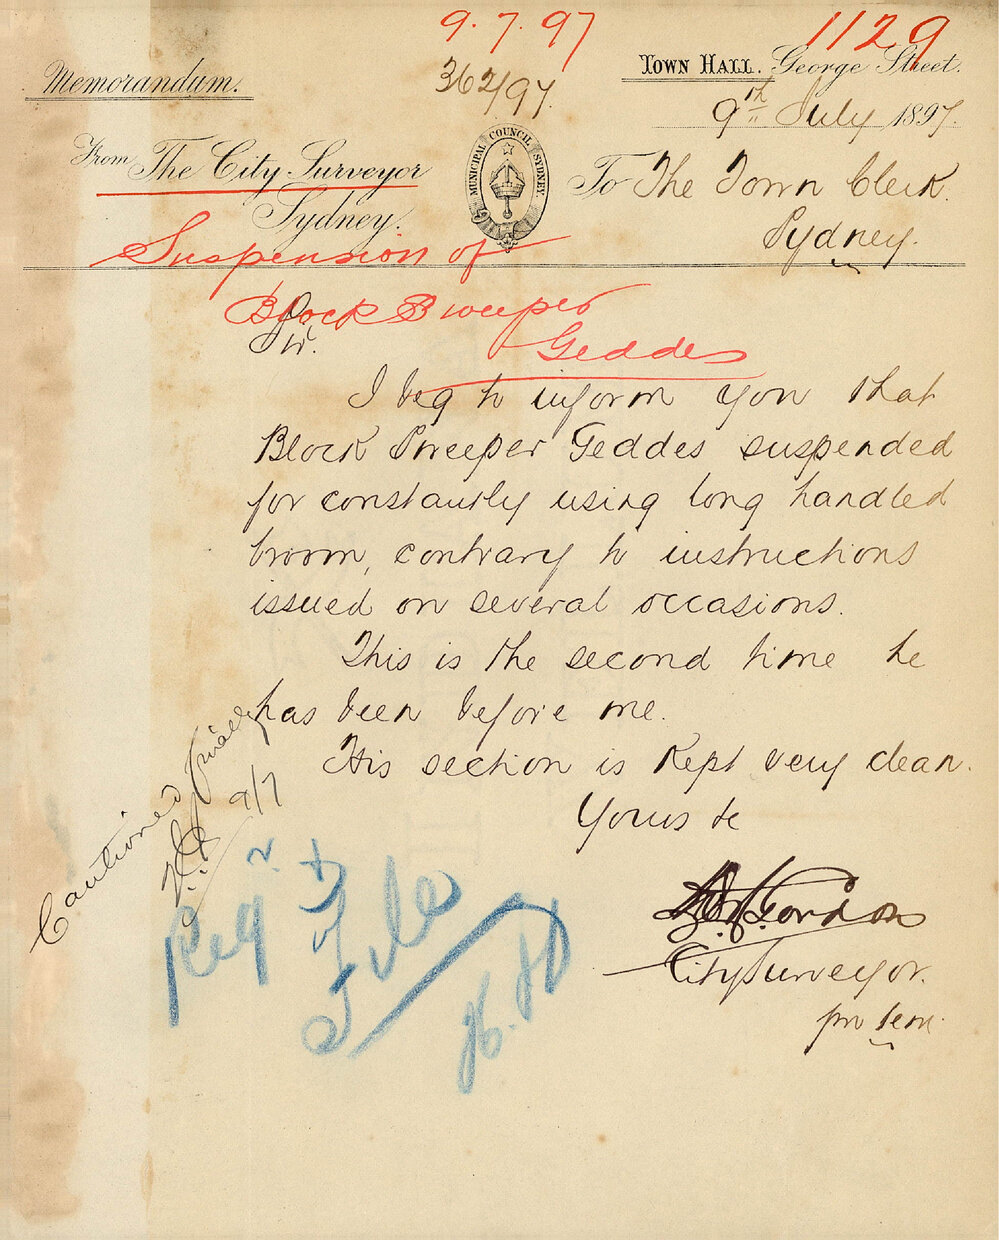 9.7.97
1129
Memorandum.
362/97.
TOWN HALL. George Street.
9th July 1897.
From The City Surveyor
Sydney.
MUNICIPAL COUNCIL SYDNEY
To The Town Clerk.
Sydney.
Suspension of
Block Sweeper
Geddes
Sir.
I beg to inform you that
Block Sweeper Geddes suspended
for constantly using long handled
broom, contrary to instructions
issued on several occasions.
This is the second time he
has been before me.
His section is kept very clean.
Yours &c
Gordon
City Surveyor.
pro tem.
Cautioned finally
9/7
Reg
File